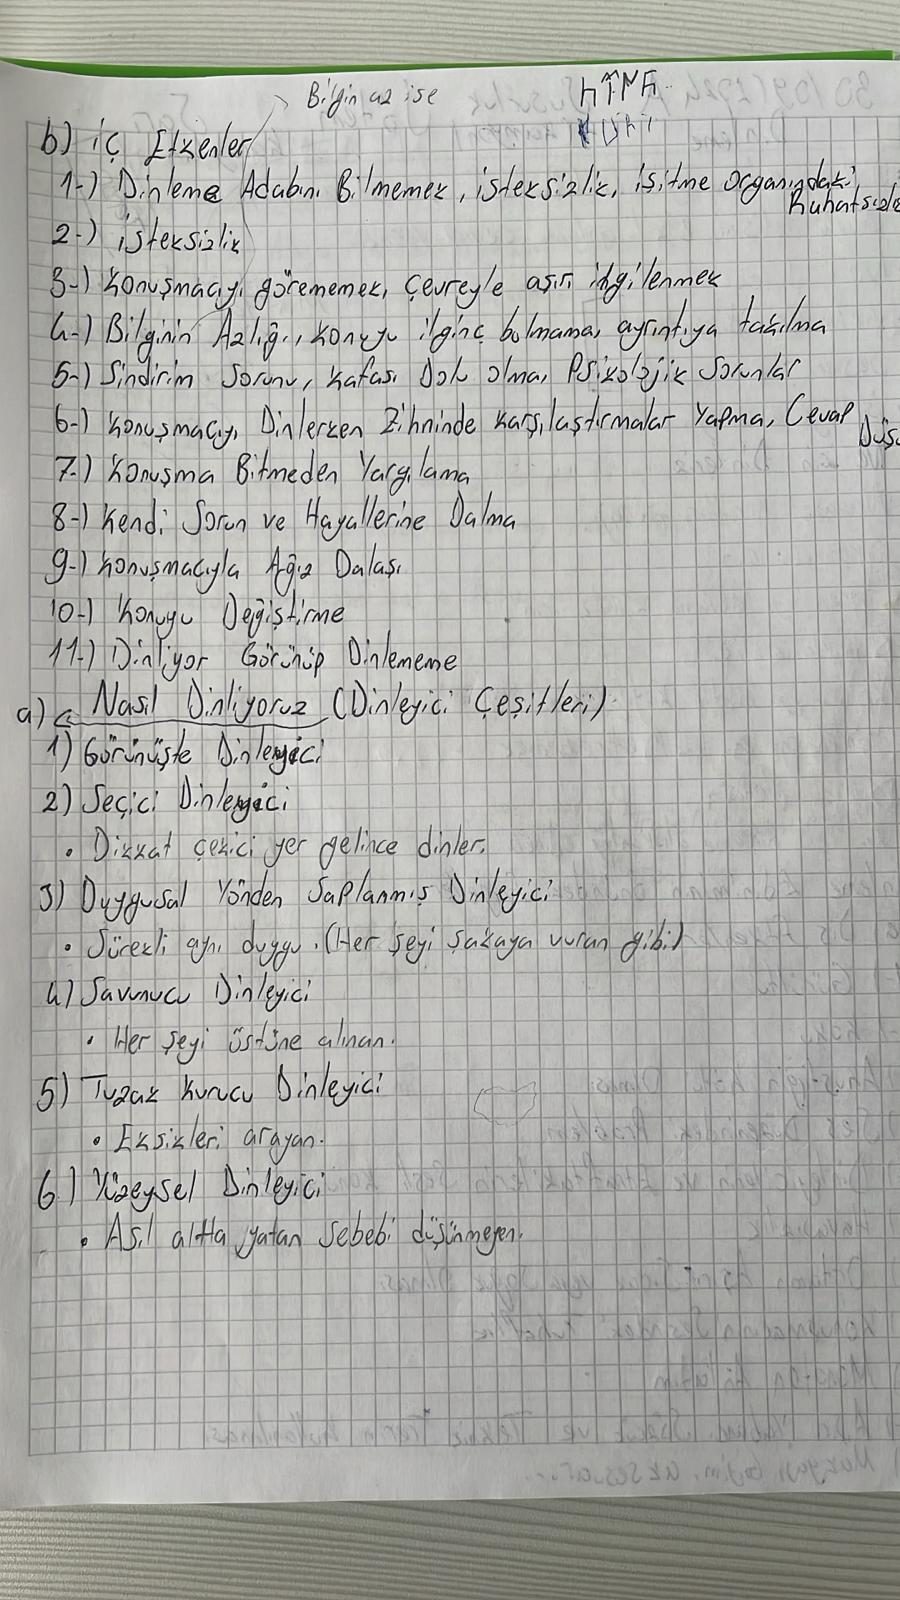 Bilgin az ise
b) iç Etkenler
1-) Dinleme Adabını Bilmemek, isteksizlik, işitme organındaki Rahatsızlı
2-) isteksizlik
3-) Konuşmacıyı görememek, çevreyle aşırı ilgilenmek
4-) Bilginin Azlığı, Konuyu ilginç bulmama, ayrıntıya takılma
5-) Sindirim Sorunu, Kafası Dolu olma, Psikolojik Sorunlar
6-) Konuşmacıyı Dinlerken Zihninde Karşılaştırmalar Yapma, Cevap Düşü
7-) Konuşma Bitmeden Yargılama
8-) Kendi Sorun ve Hayallerine Dalma
9-) Konuşmacıyla Ağız Dalaşı
10-) Konuyu Değiştirme
11-) Dinliyor Görünüp Dinlememe
a) Nasıl Dinliyoruz (Dinleyici Çeşitleri)
1) Görünüşte Dinleyici
2) Seçici Dinleyici
• Dikkat çekici yer gelince dinler.
3) Duygusal Yönden Saplanmış Dinleyici
• Sürekli aynı duygu. (Her şeyi şakaya vuran gibi)
4) Savunucu Dinleyici
• Her şeyi üstüne alınan.
5) Tuzak Kurucu Dinleyici
• Eksikleri arayan.
6) Yüzeysel Dinleyici
• Asıl altta yatan Sebebi düşünmeyen.